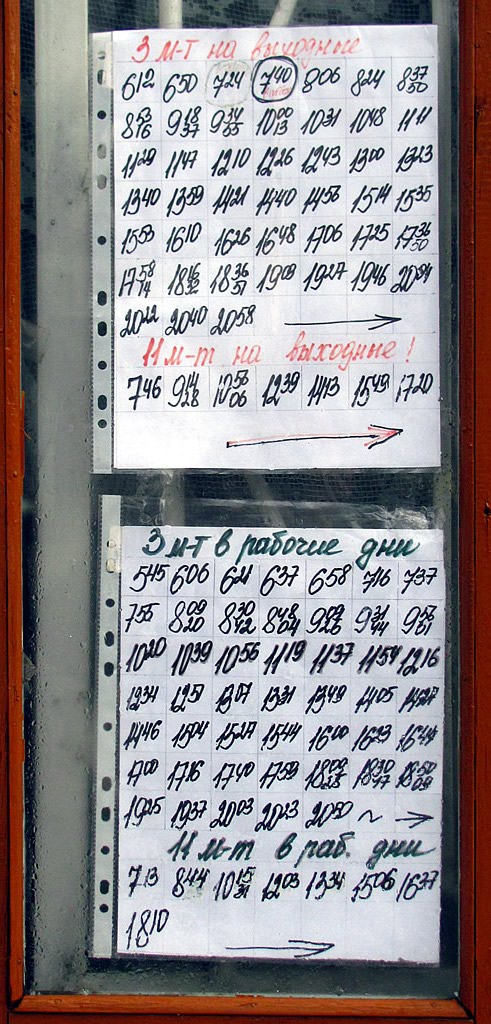 3 м-т на выходные
6¹² 6⁵⁰ 7²⁴ 7⁴⁰ 8⁰⁶ 8²⁴ 8³⁷₅₀
8⁵³₁₆ 9¹⁸₃₇ 9³⁴₅₅ 10⁰⁰₁₃ 10³¹ 10⁴⁸ 11¹¹
11²⁹ 11⁴⁷ 12¹⁰ 12²⁶ 12⁴³ 13⁰⁰ 13²³
13⁴⁰ 13⁵⁹ 14²¹ 14⁴⁰ 14⁵⁶ 15¹⁴ 15³⁵
15⁵⁵ 16¹⁰ 16²⁶ 16⁴⁸ 17⁰⁶ 17²⁵ 17³⁶₅₀
17⁵⁸₁₄ 18¹⁶₃₂ 18³⁶₅₁ 19⁰⁹ 19²⁷ 19⁴⁶
20²² 20⁴⁰ 20⁵⁸
11 м-т на выходные!
7⁴⁶ 9¹⁴₂₈ 10⁵⁶₀₆ 12³⁹ 14¹³ 15⁴⁹ 17²⁰
3 м-т в рабочие дни
5⁴⁵ 6⁰⁶ 6²¹ 6³⁷ 6⁵⁸ 7¹⁶ 7³⁷
7⁵⁵ 8⁰⁹₂₀ 8³⁰₄₂ 8⁴⁸₀₄ 9⁰⁹₂₅ 9³¹₄₄ 9⁵⁶₀₁
10²⁰ 10³⁹ 10⁵⁶ 11¹⁹ 11³⁷ 11⁵⁴ 12¹⁶
12³⁴ 12⁵¹ 13⁰⁷ 13³¹ 13⁴⁹ 14⁰⁵ 14²⁷
14⁴⁶ 15⁰⁴ 15²⁷ 15⁴⁴ 16⁰⁰ 16²³ 16⁴⁴
17⁰⁰ 17¹⁶ 17⁴⁰ 17⁵⁹ 18³⁰₄₇ 18⁵⁰₀₉
19²⁵ 19³⁷ 20⁰³ 20²³ 20⁵⁰ ~
11 м-т в раб. дни
7¹³ 8⁴⁴ 10¹⁵₃₁ 12⁰³ 13³⁴ 15⁰⁶ 16³⁷
18¹⁰